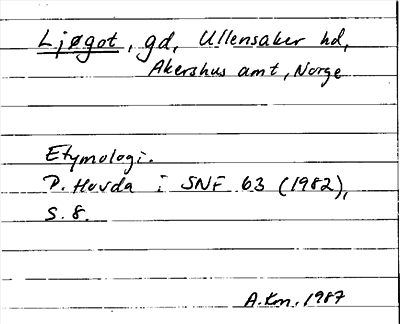 Ljøgot, gd, Ullensaker hd,
Akershus amt, Norge
Etymologi.
P. Hovda i SNF 63 (1982),
s. 8.
A.Km. 1987